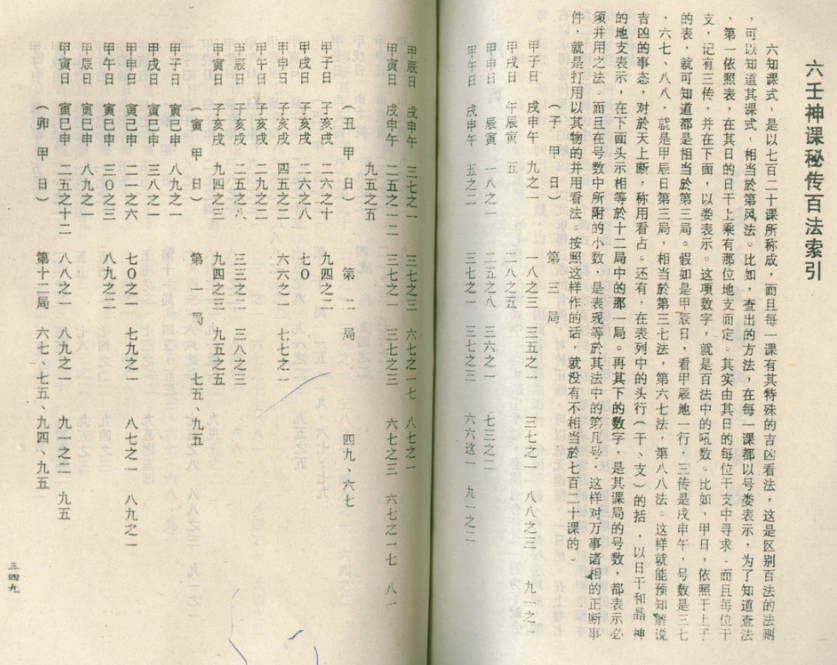 六壬神课秘传百法索引
六知课式，是以七百二十课所称成，而且每一课有其特殊的吉凶看法，这是区别百法的法则
，可以知道其课式，相当於第风法。比如，查出的方法，在每一课都以号娄表示，为了知道查法
，第一依照表，在其日的日干上乘有那位地支而定。其实由其日的每位干支中寻求，而且每位干
支，记有三传，并在下面，以娄表示。这项数字，就是百法中的吼数。比如，甲日，依照干上子
的表，就可知道都是相当於第三局。假如是甲辰日，看甲辰地一行，三传是戌申午，号数是三七
，六七、八八，就是甲辰日第三局，相当於第三七法，第六七法，第八八法。这样就能预知解说
吉凶的事态，对於天上断，称用看占。还有，在表列中的头行（干、支）的括，以日干和晶神
的地支表示，在下面头示相等於十二局中的那一局。再其下的数字，是其课局的号数，都表示必
须并用之法。而且在号数中所附的小数，是表现等於其法中的第几号，这样对万事诸相的正断事
件，就是打用以其物的并用看法。按照这样作的话，就没有不相当於七百二十课的。
（子 甲 日） 第 三 局
甲子日 戌申午 九之一 一八之三 三五之一 三七之一 八八之三 九一之二
甲戌日 午辰寅 五 二八之五
甲申日 辰寅 一八之一 二五之八 三六之一 七三之二
甲午日 戌申午 五之二 三七之一 三七之三 六六这一 九一之二
甲辰日 戌申午 三七之一 三七之三 六七之一七 八七之一
甲寅日 戌申午 二五之一二 三七之一 三七之三 六七之三 六七之一七 八一
九五之五
（丑 甲 日） 第 二 局 四九、六七
甲子日 子亥戌 二六之十 九四之二
甲戌日 子亥戌 二六之八 七〇
甲申日 子亥戌 四五之二 六六之一 七七之一
甲午日 子亥戌 二九之二
甲辰日 子亥戌 二五之八 三三之一 三八之三
甲寅日 子亥戌 九四之三 九四之三 九五之五
（寅 甲 日） 第 一 局 七五、九五
甲子日 寅巳申 八九之一
甲戌日 寅巳申 三八之一
甲申日 寅巳申 二一之六 七〇之一 七九之一 八七之一 八九之一
甲午日 寅巳申 三〇之三 八九之二
甲辰日 寅巳申 八九之一
甲寅日 寅巳申 二五之十二 八八之一 八九之一 九一之二 九五
（卯 甲 日） 第十二局 六七、七五、九四、九五
三四九